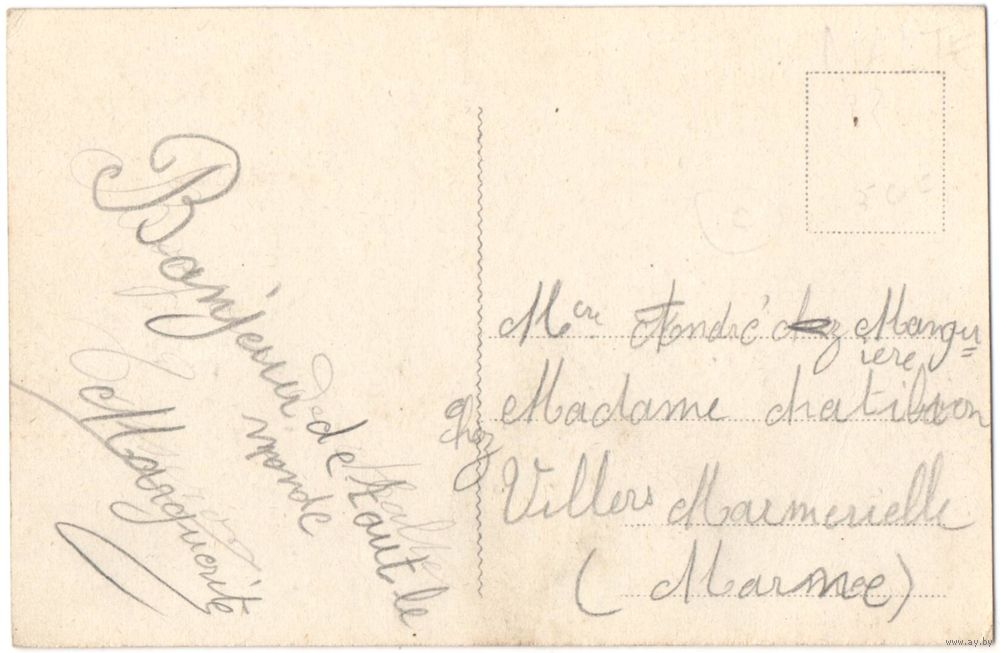 Bonjour
de tout le
monde
Marguerite
Mcre André chez Mangu=
iere
chez Madame Chatillon
Villers Marmerielle
(Marne)
www.ay.by